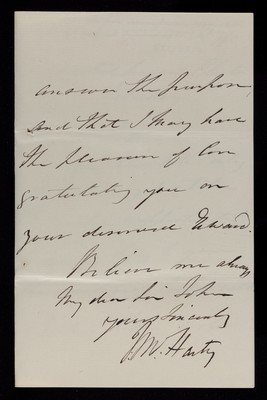 answer the purpose,
and that I may have
the pleasure of Con
gratulating you on
your deserved reward.
Believe me always
My dear Sir John
yours sincerely
W. Harty